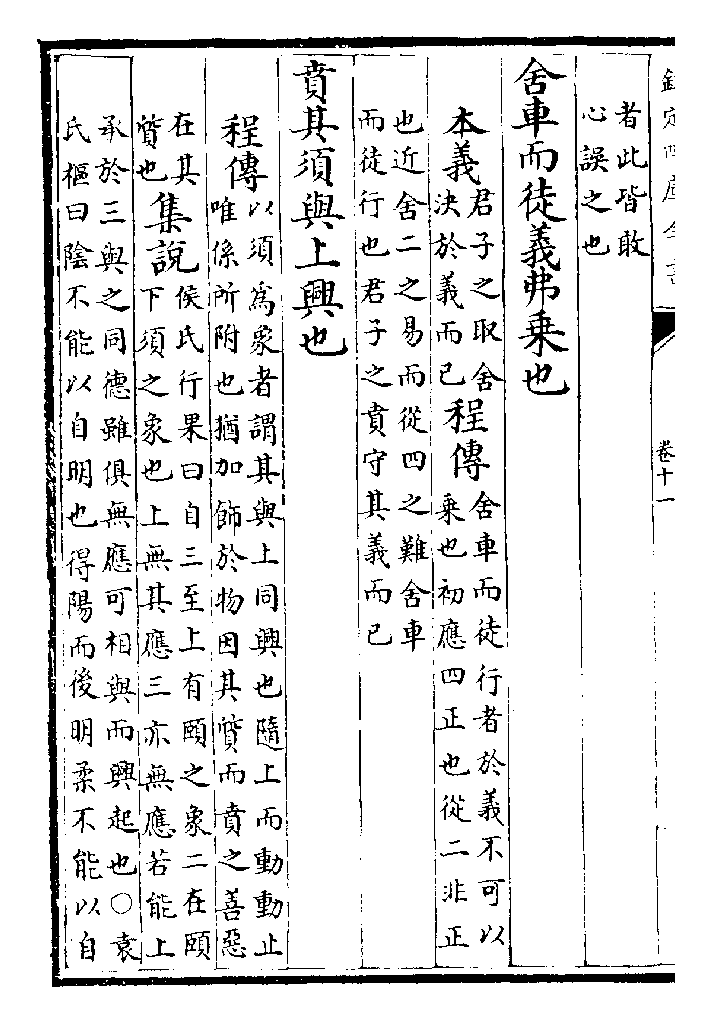 欽定四庫全書
卷十一
者此皆敢
心誤之也
舍車而徒義弗乗也
本義君子之取舍
決於義而已程傳舍車而徒行者於義不可以
乗也初應四正也從二非正
也近舍二之易而從四之難舍車
而徒行也君子之賁守其義而已
賁其須與上興也
程傳以須為象者謂其與上同興也隨上而動動止
唯係所附也猶加飾於物因其質而賁之善惡
在其
質也集說侯氏行果曰自三至上有頤之象二在頤
下須之象也上無其應三亦無應若能上
承於三與之同德雖俱無應可相與而興起也○袁
氏樞曰陰不能以自明也得陽而後明柔不能以自